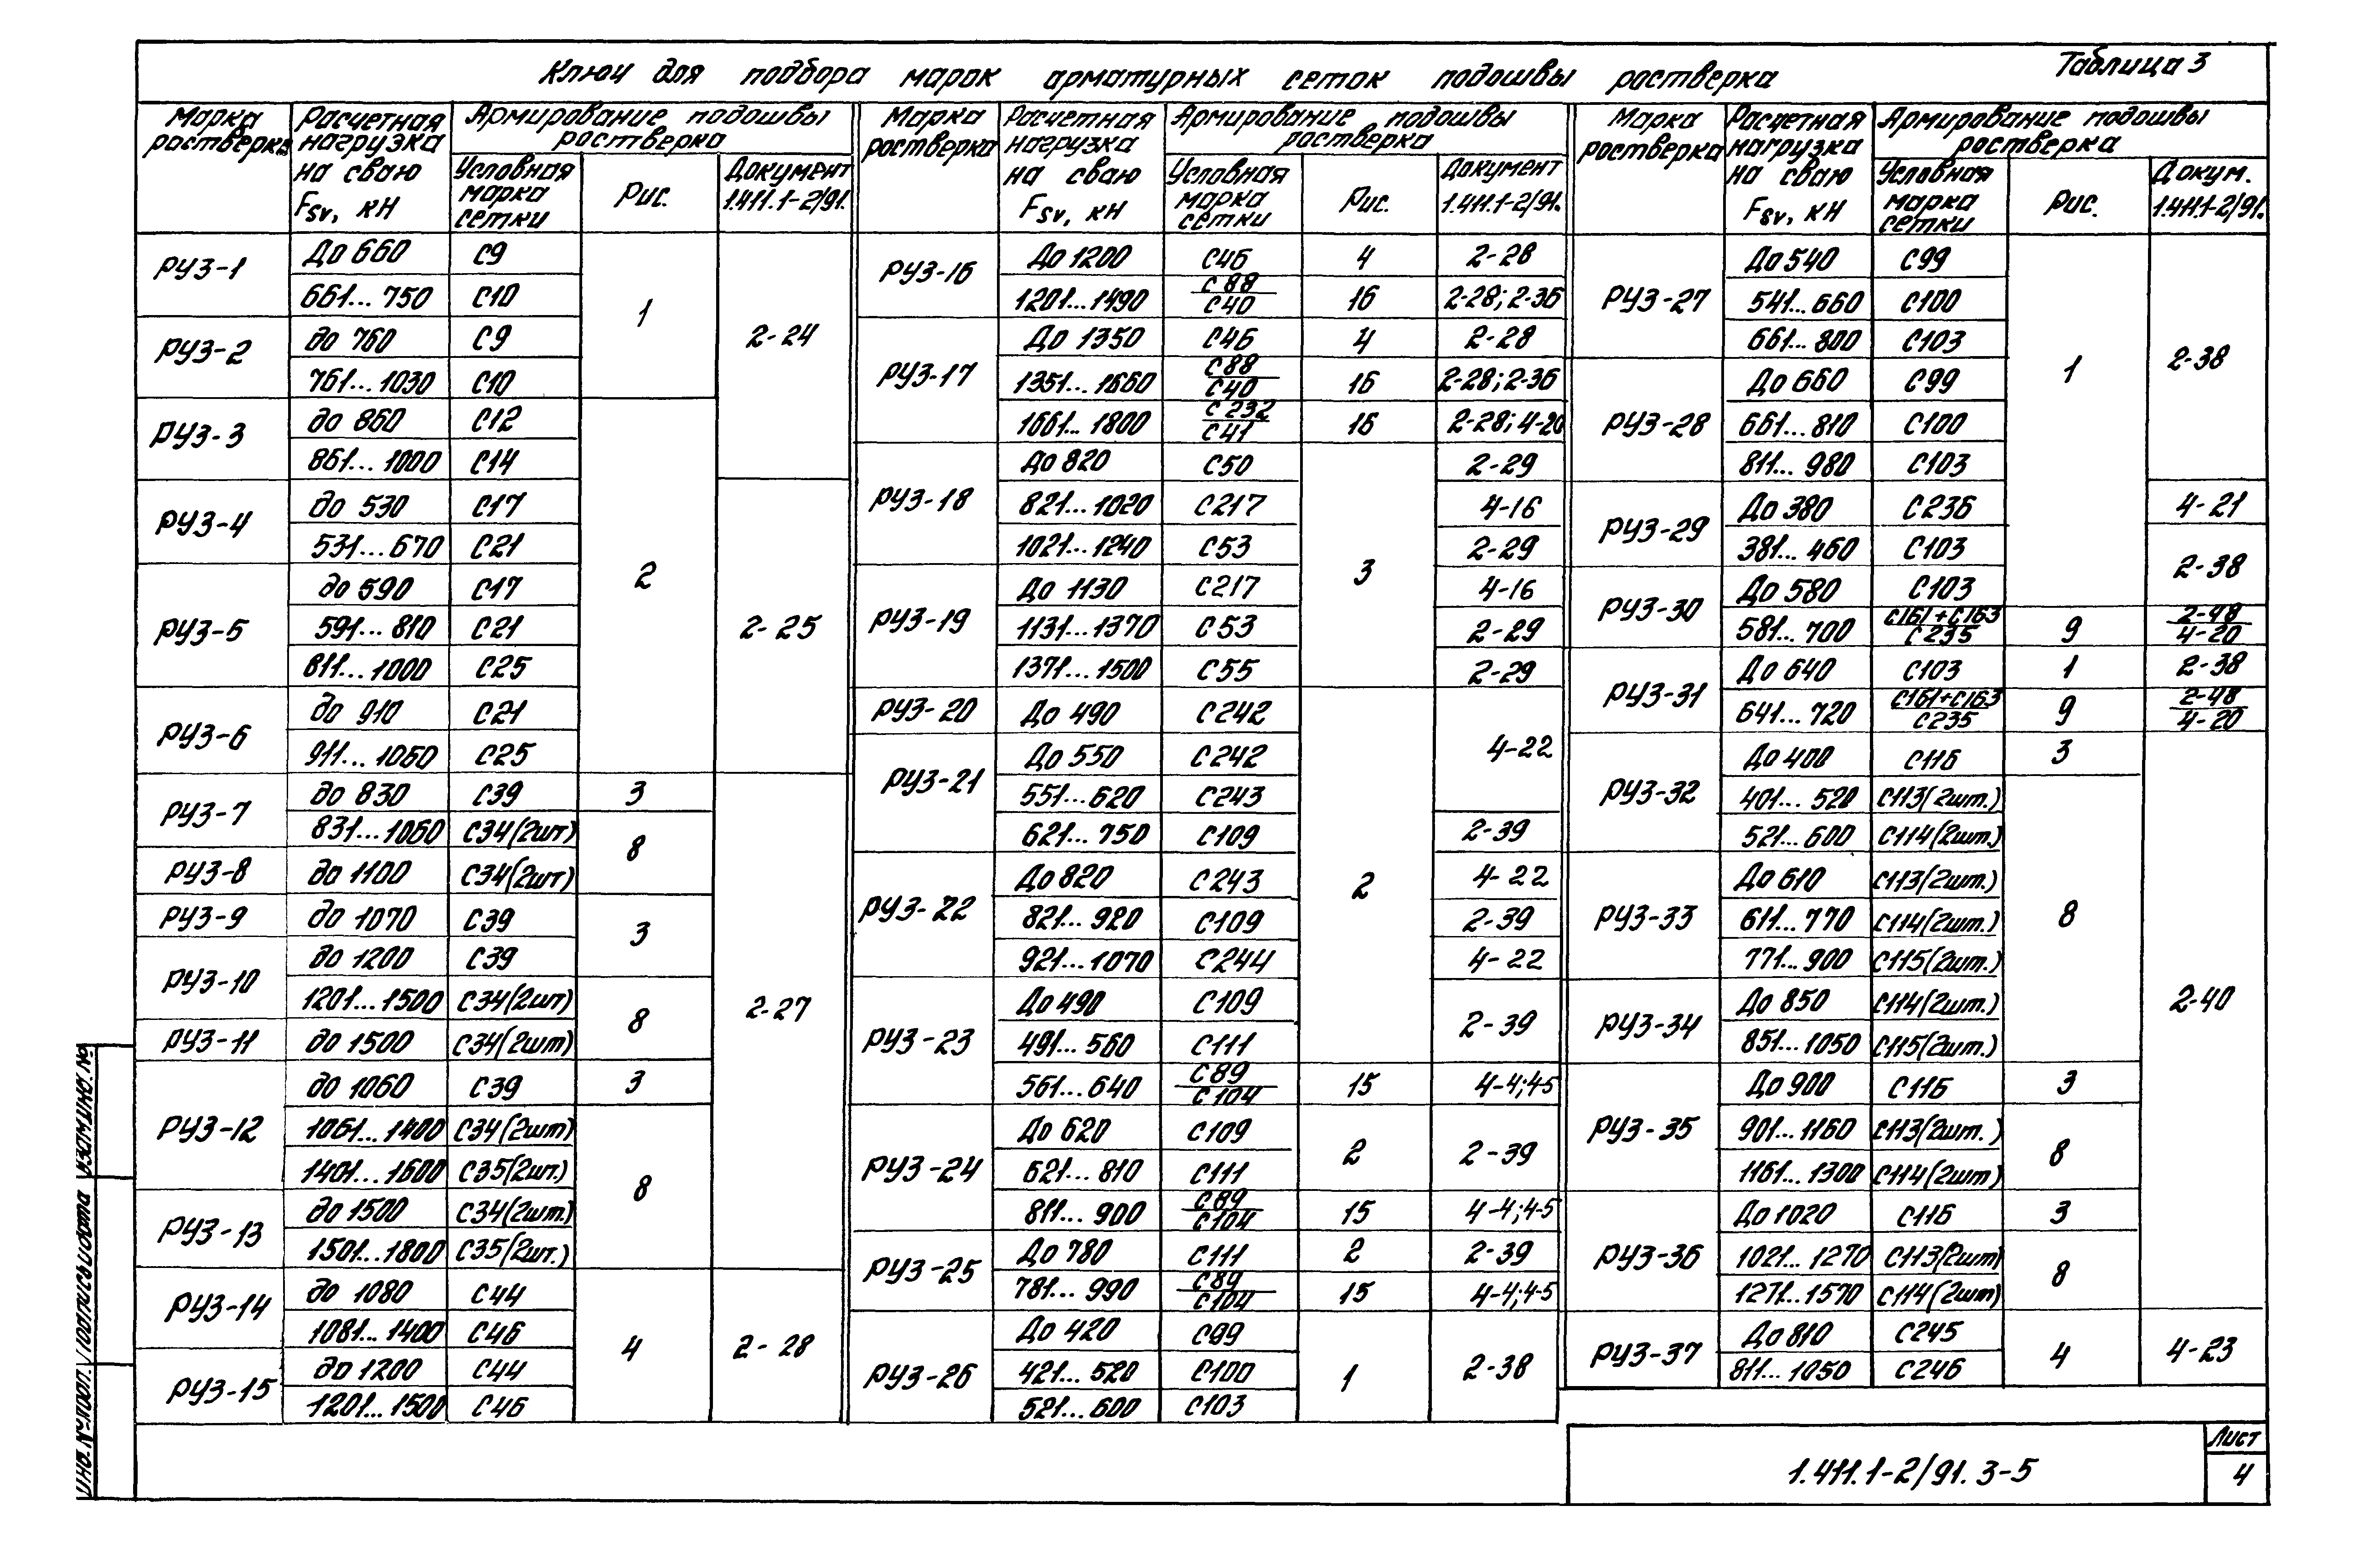 Ключ для подбора марок арматурных сеток подошвы ростверка
Таблица 3
Марка ростверка
Расчетная нагрузка на сваю Fsv, кН
Армирование подошвы ростверка
Условная марка сетки
Рис.
Документ 1.411.1-2/91.
РУ3-1
До 660 С9
661...750 С10
РУ3-2
до 760 С9
761...1030 С10
1
РУ3-3
до 860 С12
861...1000 С14
2-24
РУ3-4
до 530 С17
531...670 С21
РУ3-5
до 590 С17
591...810 С21
811...1000 С25
РУ3-6
до 910 С21
911...1060 С25
2
2-25
РУ3-7
до 830 С39 3
831...1060 С34(2шт)
РУ3-8
до 1100 С34(2шт)
8
РУ3-9
до 1070 С39
РУ3-10
до 1200 С39
3
1201...1500 С34(2шт)
РУ3-11
до 1500 С34(2шт)
8
РУ3-12
до 1060 С39 3
1061...1400 С34(2шт)
1401...1600 С35(2шт.)
РУ3-13
до 1500 С34(2шт.)
1501...1800 С35(2шт.)
8
2-27
РУ3-14
до 1080 С44
1081...1400 С46
РУ3-15
до 1200 С44
1201...1500 С46
4
2-28
Марка ростверка
Расчетная нагрузка на сваю Fsv, кН
Армирование подошвы ростверка
Условная марка сетки
Рис.
Документ 1.411.1-2/91.
РУ3-16
До 1200 С46 4 2-28
1201...1490 С88/С40 16 2-28; 2-36
РУ3-17
До 1350 С46 4 2-28
1351...1660 С88/С40 16 2-28; 2-36
1661...1800 С232/С41 16 2-28; 4-20
РУ3-18
До 820 С50 2-29
821...1020 С217 4-16
1021...1240 С53 2-29
РУ3-19
До 1130 С217 4-16
1131...1370 С53 2-29
1371...1500 С55 2-29
3
РУ3-20
До 490 С242
РУ3-21
До 550 С242
551...620 С243
4-22
621...750 С109 2-39
РУ3-22
До 820 С243 4-22
821...920 С109 2-39
921...1070 С244 4-22
РУ3-23
До 490 С109
491...560 С111
2
2-39
561...640 С89/С104 15 4-4; 4-5
РУ3-24
До 620 С109
621...810 С111
2
2-39
811...900 С89/С104 15 4-4; 4-5
РУ3-25
До 780 С111 2 2-39
781...990 С89/С104 15 4-4; 4-5
РУ3-26
До 420 С99
421...520 С100
521...600 С103
1
2-38
Марка ростверка
Расчетная нагрузка на сваю Fsv, кН
Армирование подошвы ростверка
Условная марка сетки
Рис.
Докум. 1.411.1-2/91.
РУ3-27
До 540 С99
541...660 С100
661...800 С103
РУ3-28
До 660 С99
661...810 С100
811...980 С103
2-38
РУ3-29
До 380 С236 4-21
381...460 С103
РУ3-30
До 580 С103
1
2-38
581...700 С161+С163/С235 9 2-48/4-20
РУ3-31
До 640 С103 1 2-38
641...720 С161+С163/С235 9 2-48/4-20
РУ3-32
До 400 С116 3
401...520 С113(2шт.)
521...600 С114(2шт.)
РУ3-33
До 610 С113(2шт.)
611...770 С114(2шт.)
771...900 С115(2шт.)
РУ3-34
До 850 С114(2шт.)
851...1050 С115(2шт.)
8
РУ3-35
До 900 С116 3
901...1160 С113(2шт.)
1161...1300 С114(2шт)
8
РУ3-36
До 1020 С116 3
1021...1270 С113(2шт)
1271...1570 С114(2шт)
8
2-40
РУ3-37
До 810 С245
811...1050 С246
4
4-23
Инв. № подл. Подпись и дата Взам. инв. №
1.411.1-2/91. 3-5
Лист
4